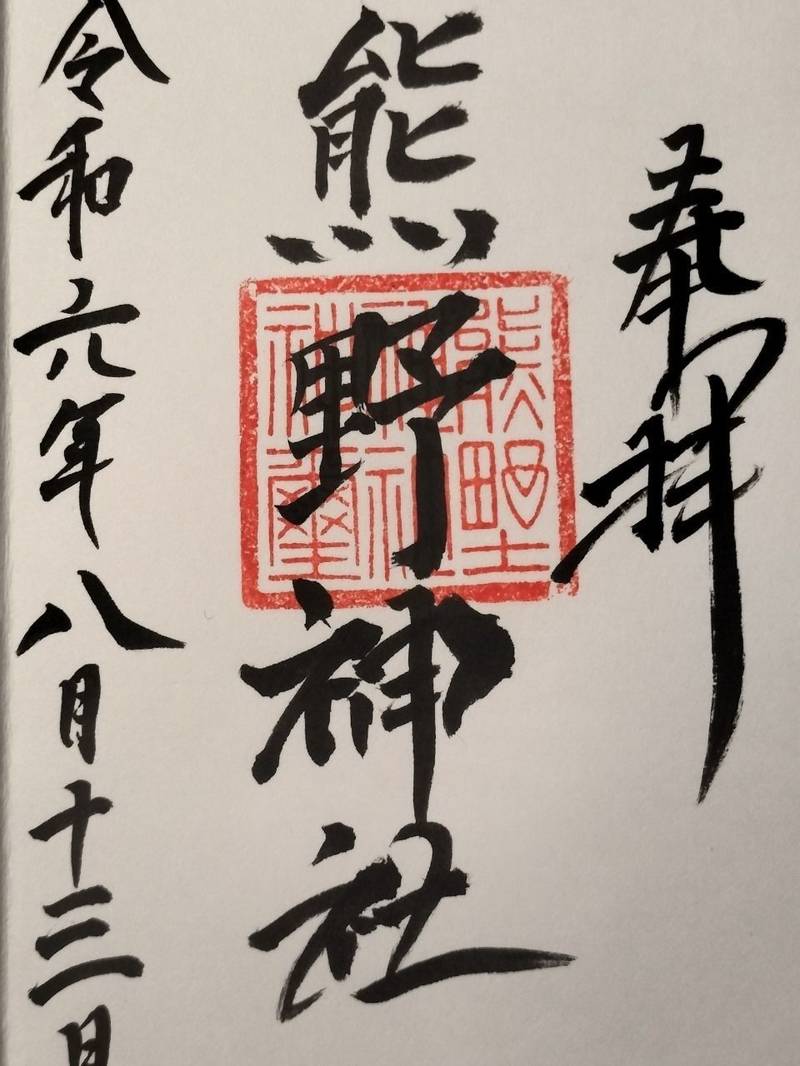 奉拝
熊野神社
熊野
神社
神璽
令和六年八月十三日